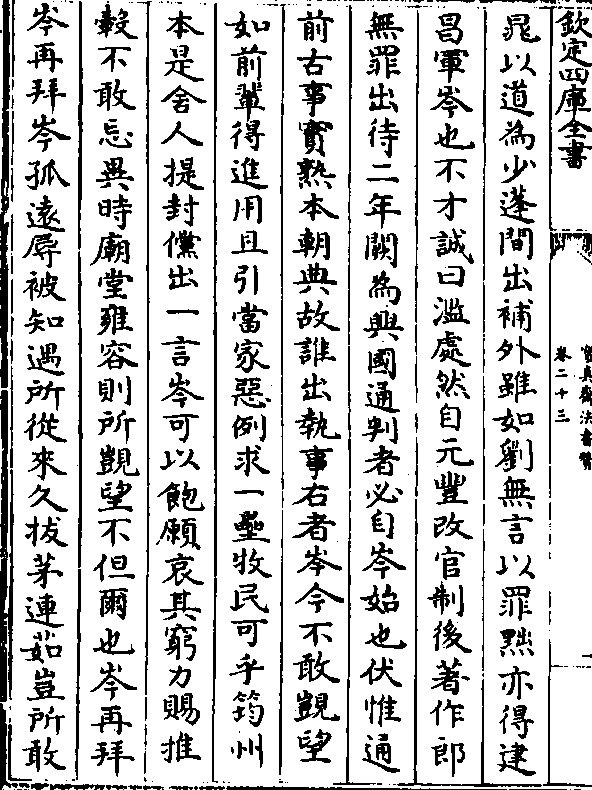 欽定四庫全書
寶真齋法書贊
卷二十三
晁以道為少蓬間出補外雖如劉無言以罪黜亦得建
昌軍岑也不才誠曰濫處然自元豐改官制後著作郎
無罪出待二年闕為興國通判者必自岑始也伏惟通
前古事實熟本朝典故誰出執事右者岑今不敢覬望
如前輩得進用且引當家惡例求一壘牧民可乎筠州
本是舍人提封儻出一言岑可以飽願哀其窮力賜推
轂不敢忘異時廟堂雍容則所覬望不但爾也岑再拜
岑再拜岑孤遠辱被知遇所從來久拔茅連茹豈所敢